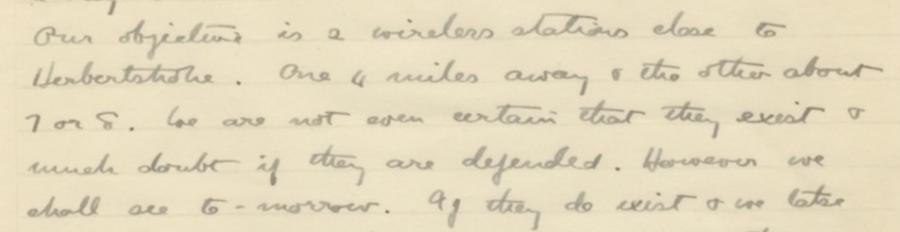 Our objective is 2 wireless stations close to
Herbertshohe. One 4 miles away & the other about
7 or 8. We are not even certain that they exist &
much doubt if they are defended. However we
shall see to-morrow. If they do exist & we take